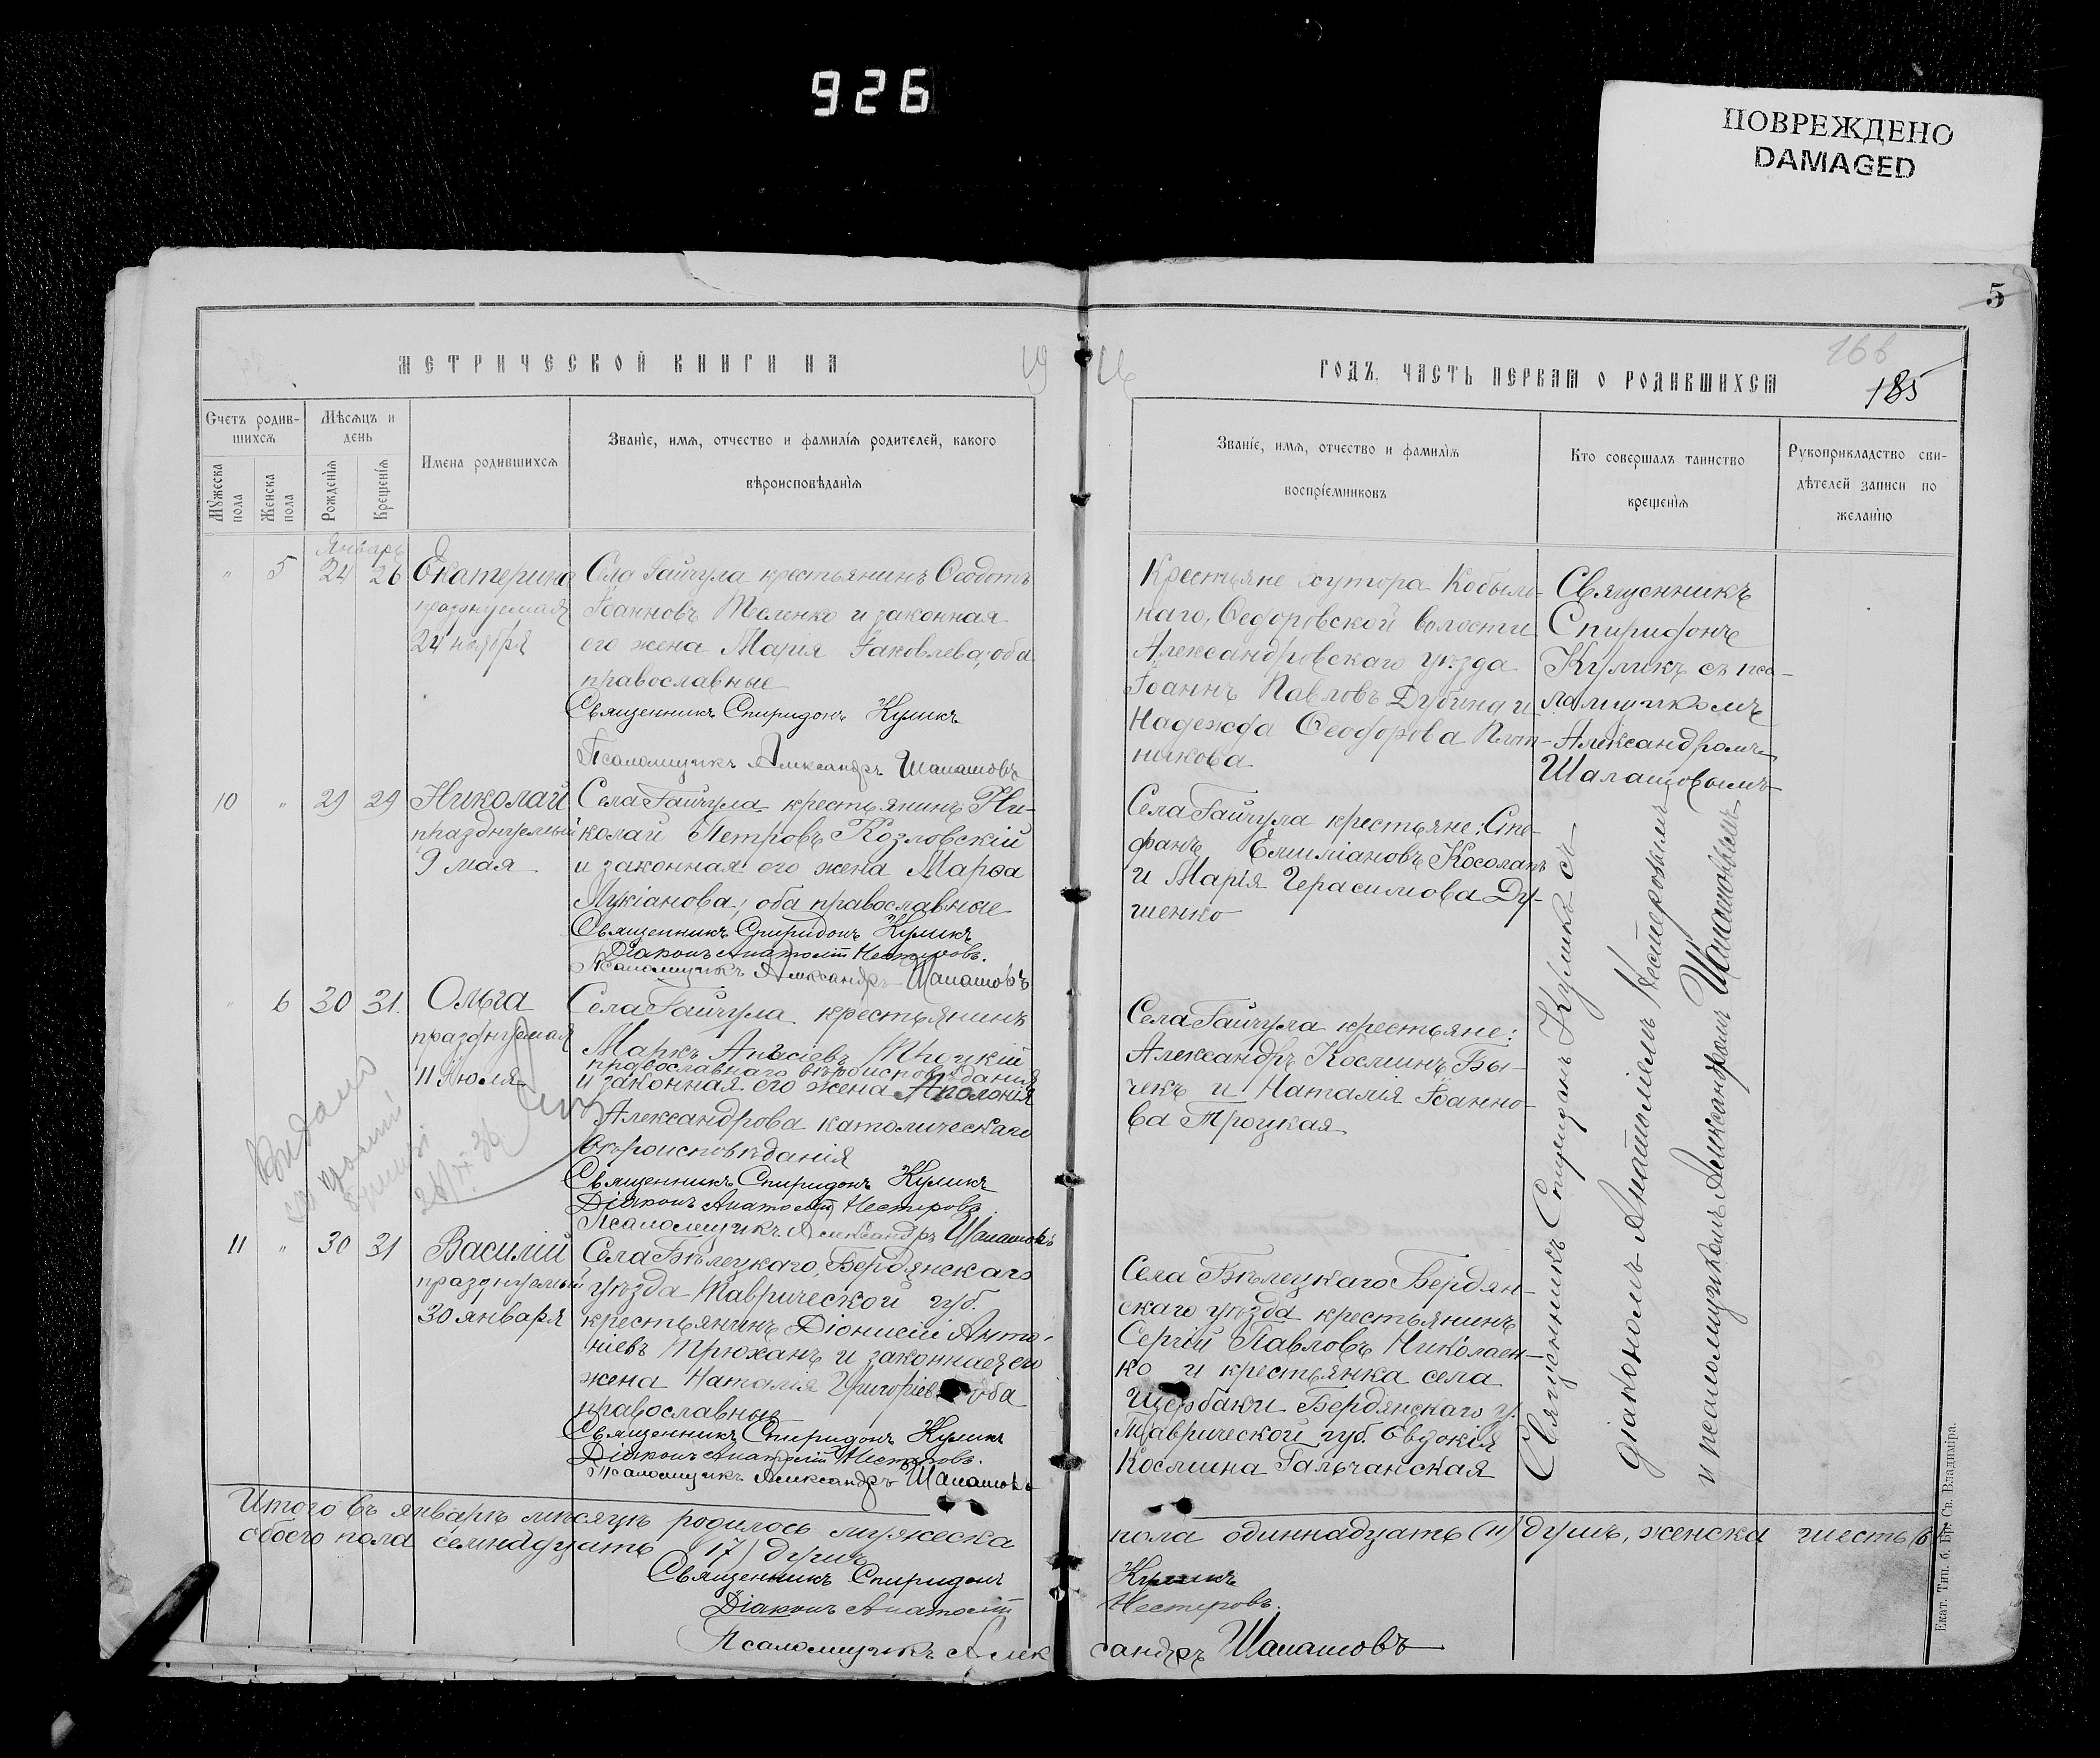 926
ПОВРЕЖДЕНО
DAMAGED
5
МЕТРИЧЕСКОЙ КНИГИ НА 19
16 ГОДЪ. ЧАСТЬ ПЕРВАЯ О РОДИВШИХСЯ
166
185
Счетъ родив-
шихся
Мѣсяцъ и
день
Мужеска
пола
Женска
пола
Рожденія
Крещенія
Имена родившихся
Званіе, имя, отчество и фамилія родителей, какого
вѣроисповѣданія
Званіе, имя, отчество и фамилія
воспріемниковъ
Кто совершалъ таинство
крещенія
Рукоприкладство сви-
дѣтелей записи по
желанію
Январь
" 5 24 26
Екатерина
празднуемая
24 ноября
Села Гайчула крестьянинъ Ѳеодотъ
Іоанновъ Теленко и законная
его жена Марія Іаковлева, оба
православные
Священникъ Спиридонъ Куликъ
Псаломщикъ Александръ Шалашовъ
Крестьяне хутора Кобыль-
наго, Ѳедоровской волости
Александровскаго уѣзда
Іоаннъ Павловъ Дубина и
Надежда Ѳеодорова Плот-
никова
Священникъ
Спиридонъ
Куликъ съ пса-
ломщикомъ
Александромъ
Шалашовымъ
10 " 29 29
Николай
празднуемый
9 мая
Села Гайчула крестьянинъ Ни-
колай Петровъ Козловскій
и законная его жена Марѳа
Лукіанова; оба православные
Священникъ Спиридонъ Куликъ
Діаконъ Анатолій Нестеровъ.
Псаломщикъ Александръ Шалашовъ
Села Гайчула крестьяне: Сте-
фанъ Емиліановъ Косолапъ
и Марія Герасимова Ду-
шенко
" 6 30 31.
Ольга
празднуемая
11 Іюля
Села Гайчула крестьянинъ
Маркъ Троцкій
православнаго вѣроисповѣданія
и законная его жена Аполонія
Александрова католическаго
вѣроисповѣданія
Священникъ Спиридонъ Куликъ
Діаконъ Анатолій Нестеровъ.
Псаломщикъ Александръ Шалашовъ
Села Гайчула крестьяне:
Александръ Косминъ Бы-
чекъ и Наталія Іоанно-
ва Троцкая
Видано
11 " 30 31
Василій
празднуемый
30 января
Села Бѣлецкаго, Бердянскаго
уѣзда Таврической губ.
крестьянинъ Діонисій Анто-
ніевъ Трюханъ и законная его
жена Наталія Григоріева оба
православные
Священникъ Спиридонъ Куликъ
Діаконъ Анатолій Нестеровъ.
Псаломщикъ Александръ Шалашовъ
Села Бѣлецкаго Бердян-
скаго уѣзда крестьянинъ
Сергій Павловъ Николаен-
ко и крестьянка села
Щербаки Бердянскаго у.
Таврической губ. Евдокія
Космина Гальчанская
Священникъ Спиридонъ Куликъ съ
діакономъ Анатоліемъ Нестеровымъ
и псаломщикомъ Александромъ Шалашовымъ
Итого въ январѣ мѣсяцѣ родилось мужеска
пола одиннадцать (11) душъ, женска шесть (6)
обоего пола семнадцать (17) душъ
Священникъ Спиридонъ Куликъ
Діаконъ Анатолій Нестеровъ.
Псаломщикъ Александръ Шалашовъ
Екат. Тип. б. Бр. Св. Владиміра.